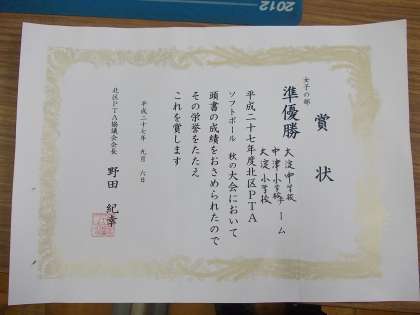 2012
賞状
女子の部
準優勝
大淀中学校
中津小学校チーム
大淀小学校
平成二十七年度北区PTA
ソフトボール 秋の大会において
頭書の成績をおさめられたので
その栄誉をたたえ
これを賞します
平成二十七年 九月 六日
北区PTA協議会会長
野田 紀幸